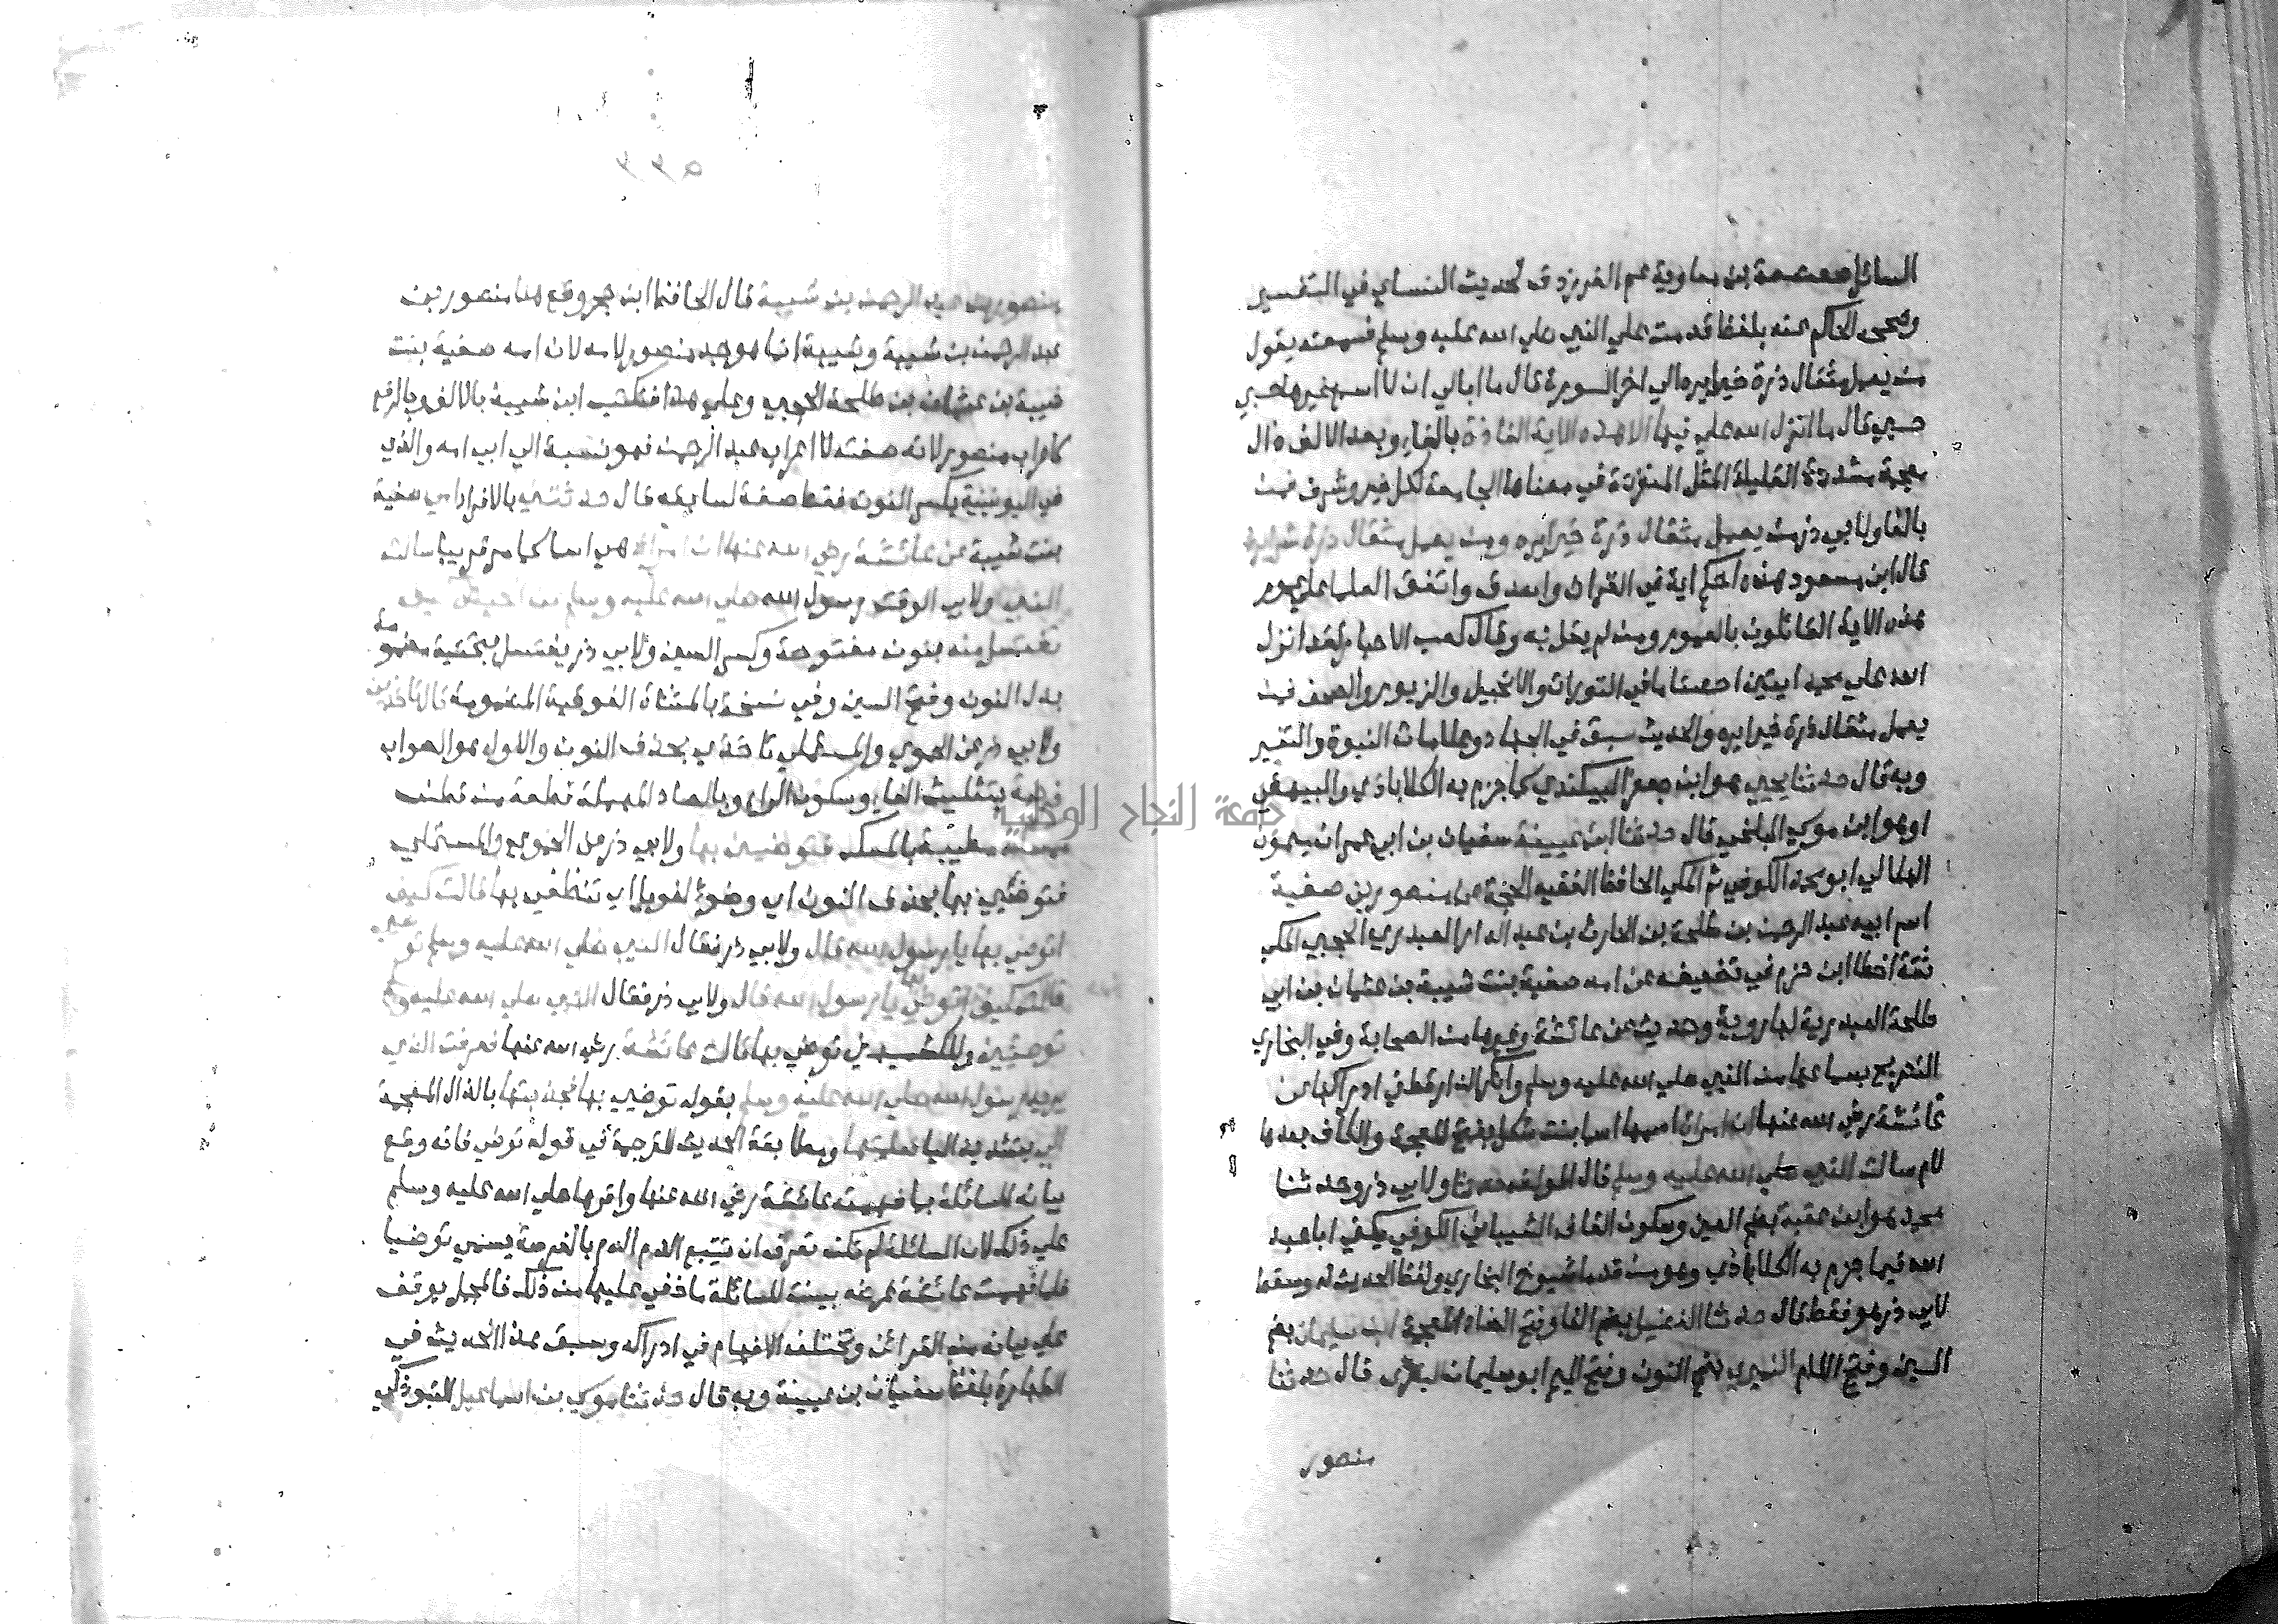 السائل صعصعة بن معاوية عم الفرزدق لحديث النساي في التفسير
وصححه الحاكم عنه بلفظ قدمت علي النبي صلي الله عليه وسلم فسمعته يقول
من يعمل مثقال ذرة خيرا يره الي اخر السورة قال ما ابالي ان لا اسمع غيرها حسبي
حسبي قال ما انزل الله علي فيها الا هذه الاية الفاذة بالفاء وبعد الالف ذال
معجمة مشددة القليلة المثل المنفردة في معناها الجامعة لكل خير وشر فمن
بالفا ولابي ذر من يعمل مثقال ذرة خيرا يره ومن يعمل مثقال ذرة شرا يره
قال ابن مسعود هذه احكم اية في القران واصدق واتفق العلما علي عموم
هذه الاية القائلون بالعموم ومن لم يقل به وقال كعب الاحبار لقد انزل
الله علي محمد ايتين احصتا ما في التوراة والانجيل والزبور والصحف فمن
يعمل مثقال ذرة خيرا يره والحديث سبق في الجهاد وعلامات النبوة والتفسير
وبه قال حدثنا يحيي هو ابن جعفر البيكندي كما جزم به الكلاباذي والبيهقي
او هو ابن موسي البلخي قال حدثنا ابن عيينة سفيان بن ابي عمران ميمون
الهلالي ابو محمد الكوفي ثم المكي الحافظ الفقيه الحجة عن منصور بن صفية
اسم ابيه عبد الرحمن بن طلحة بن الحارث بن عبد الدار العبدري الحجبي المكي
ثقة اخطا ابن حزم في تضعيفه عن امه صفية بنت شيبة بن عثمان بن ابي
طلحة العبدرية لها روية وحديث عن عائشة وغيرها من الصحابة وفي البخاري
التصريح بسماعها من النبي صلي الله عليه وسلم وانكر الدارقطني ادراكها عن
عائشة رضي الله عنها ان امراة اسمها اسما بنت شكل بفتح المعجمة والكاف بعدها
لام سالت النبي صلي الله عليه وسلم قال المولف حدثنا ولابي ذر وحدثنا
محمد هو ابن عقبة بضم العين وسكون القاف الشيباني الكوفي يكني ابا عبد
الله فيما جزم به الكلاباذي وهو من قدما شيوخ البخاري ولفظ الحديث له وسقط
لابي ذر هو فقط قال حدثنا الفضيل بضم الفا وفتح الضاد المعجمة ابن سليمان بضم
السين وفتح اللام النميري بضم النون وفتح الميم ابو سليمان البصري قال حدثنا
منصور
٢٢٥
منصور بن عبد الرحمن بن شيبة قال الحافظ ابن حجر وقع هنا منصور بن
عبد الرحمن بن شيبة وشيبة انما هو جد منصور لامه لان امه صفية بنت
شيبة بن عثمان بن طلحة الحجبي وعلي هذا فتكتب ابن شيبة بالالف وبالرفع
كاعراب منصور لانه صفته لا اعراب عبد الرحمن فهو نسبة الي ابي امه والذي
في اليونينية بكسر النون فقط صفة لسابقه قال حدثتني بالافراد امي صفية
بنت شيبة عن عائشة رضي الله عنها ان امراة هي اسما كما مر قريبا سالت
النبي ولابي الوقت رسول الله صلي الله عليه وسلم عن الحيض كيف
نغتسل منه بنون مفتوحة وكسر السين ولابي ذر يغتسل بتحتية مضمومة
بدل النون وفتح السين وفي نسخة بالمثناة الفوقية المضمومة قال تاخذين
ولابي ذر عن الحموي والمستملي تاخذي بحذف النون والاول هو الصواب
فرصة بتثليث الفاء وسكون الراء وبالصاد المهملة قطعة من قطن
ممسكة مطيبة بالمسك فتوضئين بها ولابي ذر عن الحموي والمستملي
فتوضئي بها بحذف النون اي وضوءا لغويا اي تنظفي بها قالت كيف
اتوضي بها يا رسول الله قال ولابي ذر فقال النبي صلي الله عليه وسلم توضي
قالت كيف اتوضي بها يا رسول الله قال ولابي ذر فقال النبي صلي الله عليه وسلم
توضئين توضي بها قالت عائشة رضي الله عنها فعرفت الذي
يريد رسول الله صلي الله عليه وسلم بقوله توضي بها فجذبتها بالذال المعجمة
الي بتشديد اليا فعلمتها ومطابقة الحديث للترجمة في قوله توضي فانه وقع
بيانه للسائلة بما فهمته عائشة رضي الله عنها واقرها صلي الله عليه وسلم
علي ذلك لان السائلة لم تكن تعرف ان تتبع الدم بالفرصة يسمي توضيا
فلما فهمت عائشة غرضه بينت للسائلة ما خفي عليها من ذلك فالمجمل يوقف
علي بيانه من القرائن وتختلف الافهام في ادراكه وسبق هذا الحديث في
الطهارة بلفظ سفيان بن عيينة وبه قال حدثنا موسي بن اسماعيل التبوذكي
جامعة النجاح الوطنية